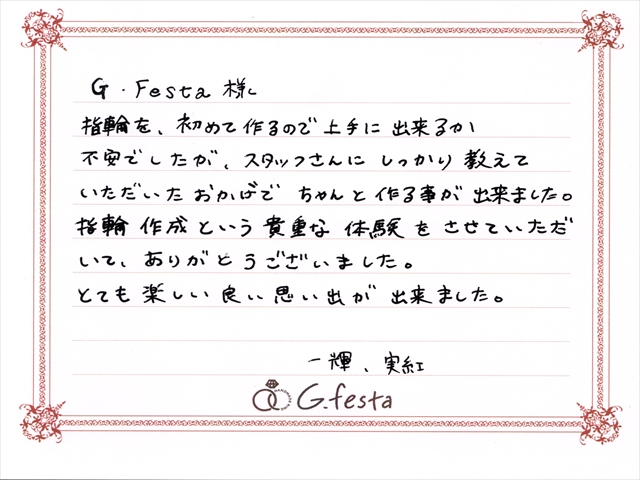 G.Festa 様へ
指輪を、初めて作るので上手に出来るか
不安でしたが、スタッフさんにしっかり教えて
いただいたおかげで ちゃんと作る事が出来ました。
指輪作成という貴重な体験をさせていただ
いて、ありがとうございました。
とても楽しい良い思い出が出来ました。
一輝、実紅
G.festa